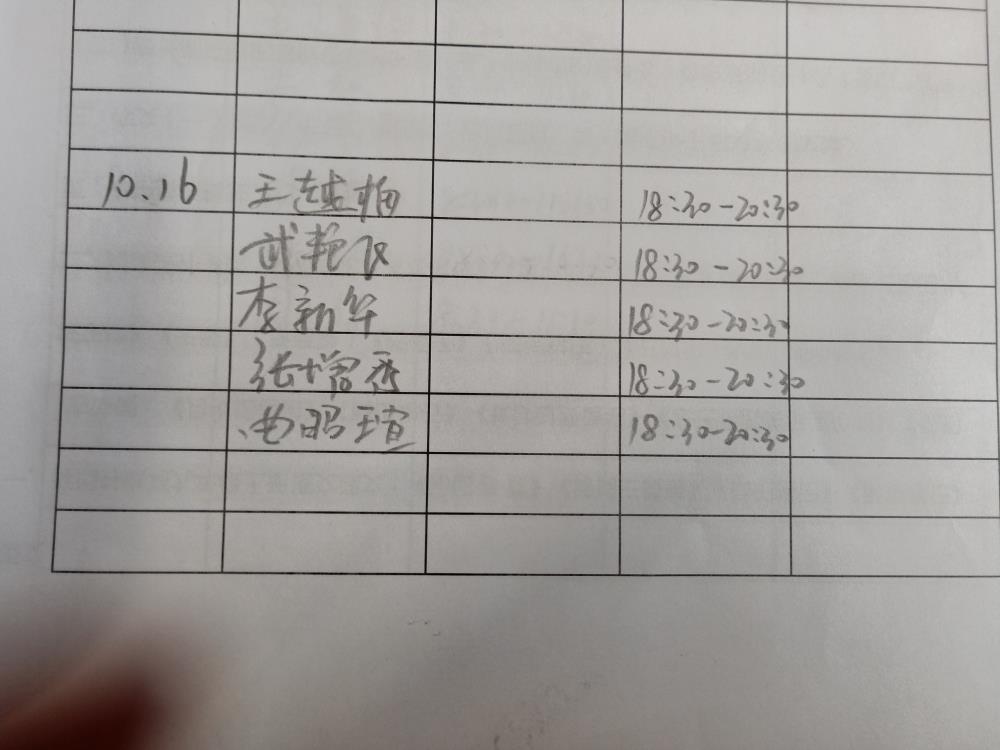 10.16 王越柏 18:30-20:30
武艳 18:30-20:30
李新华 18:30-20:30
张增香 18:30-20:30
曲昭瑄 18:30-20:30